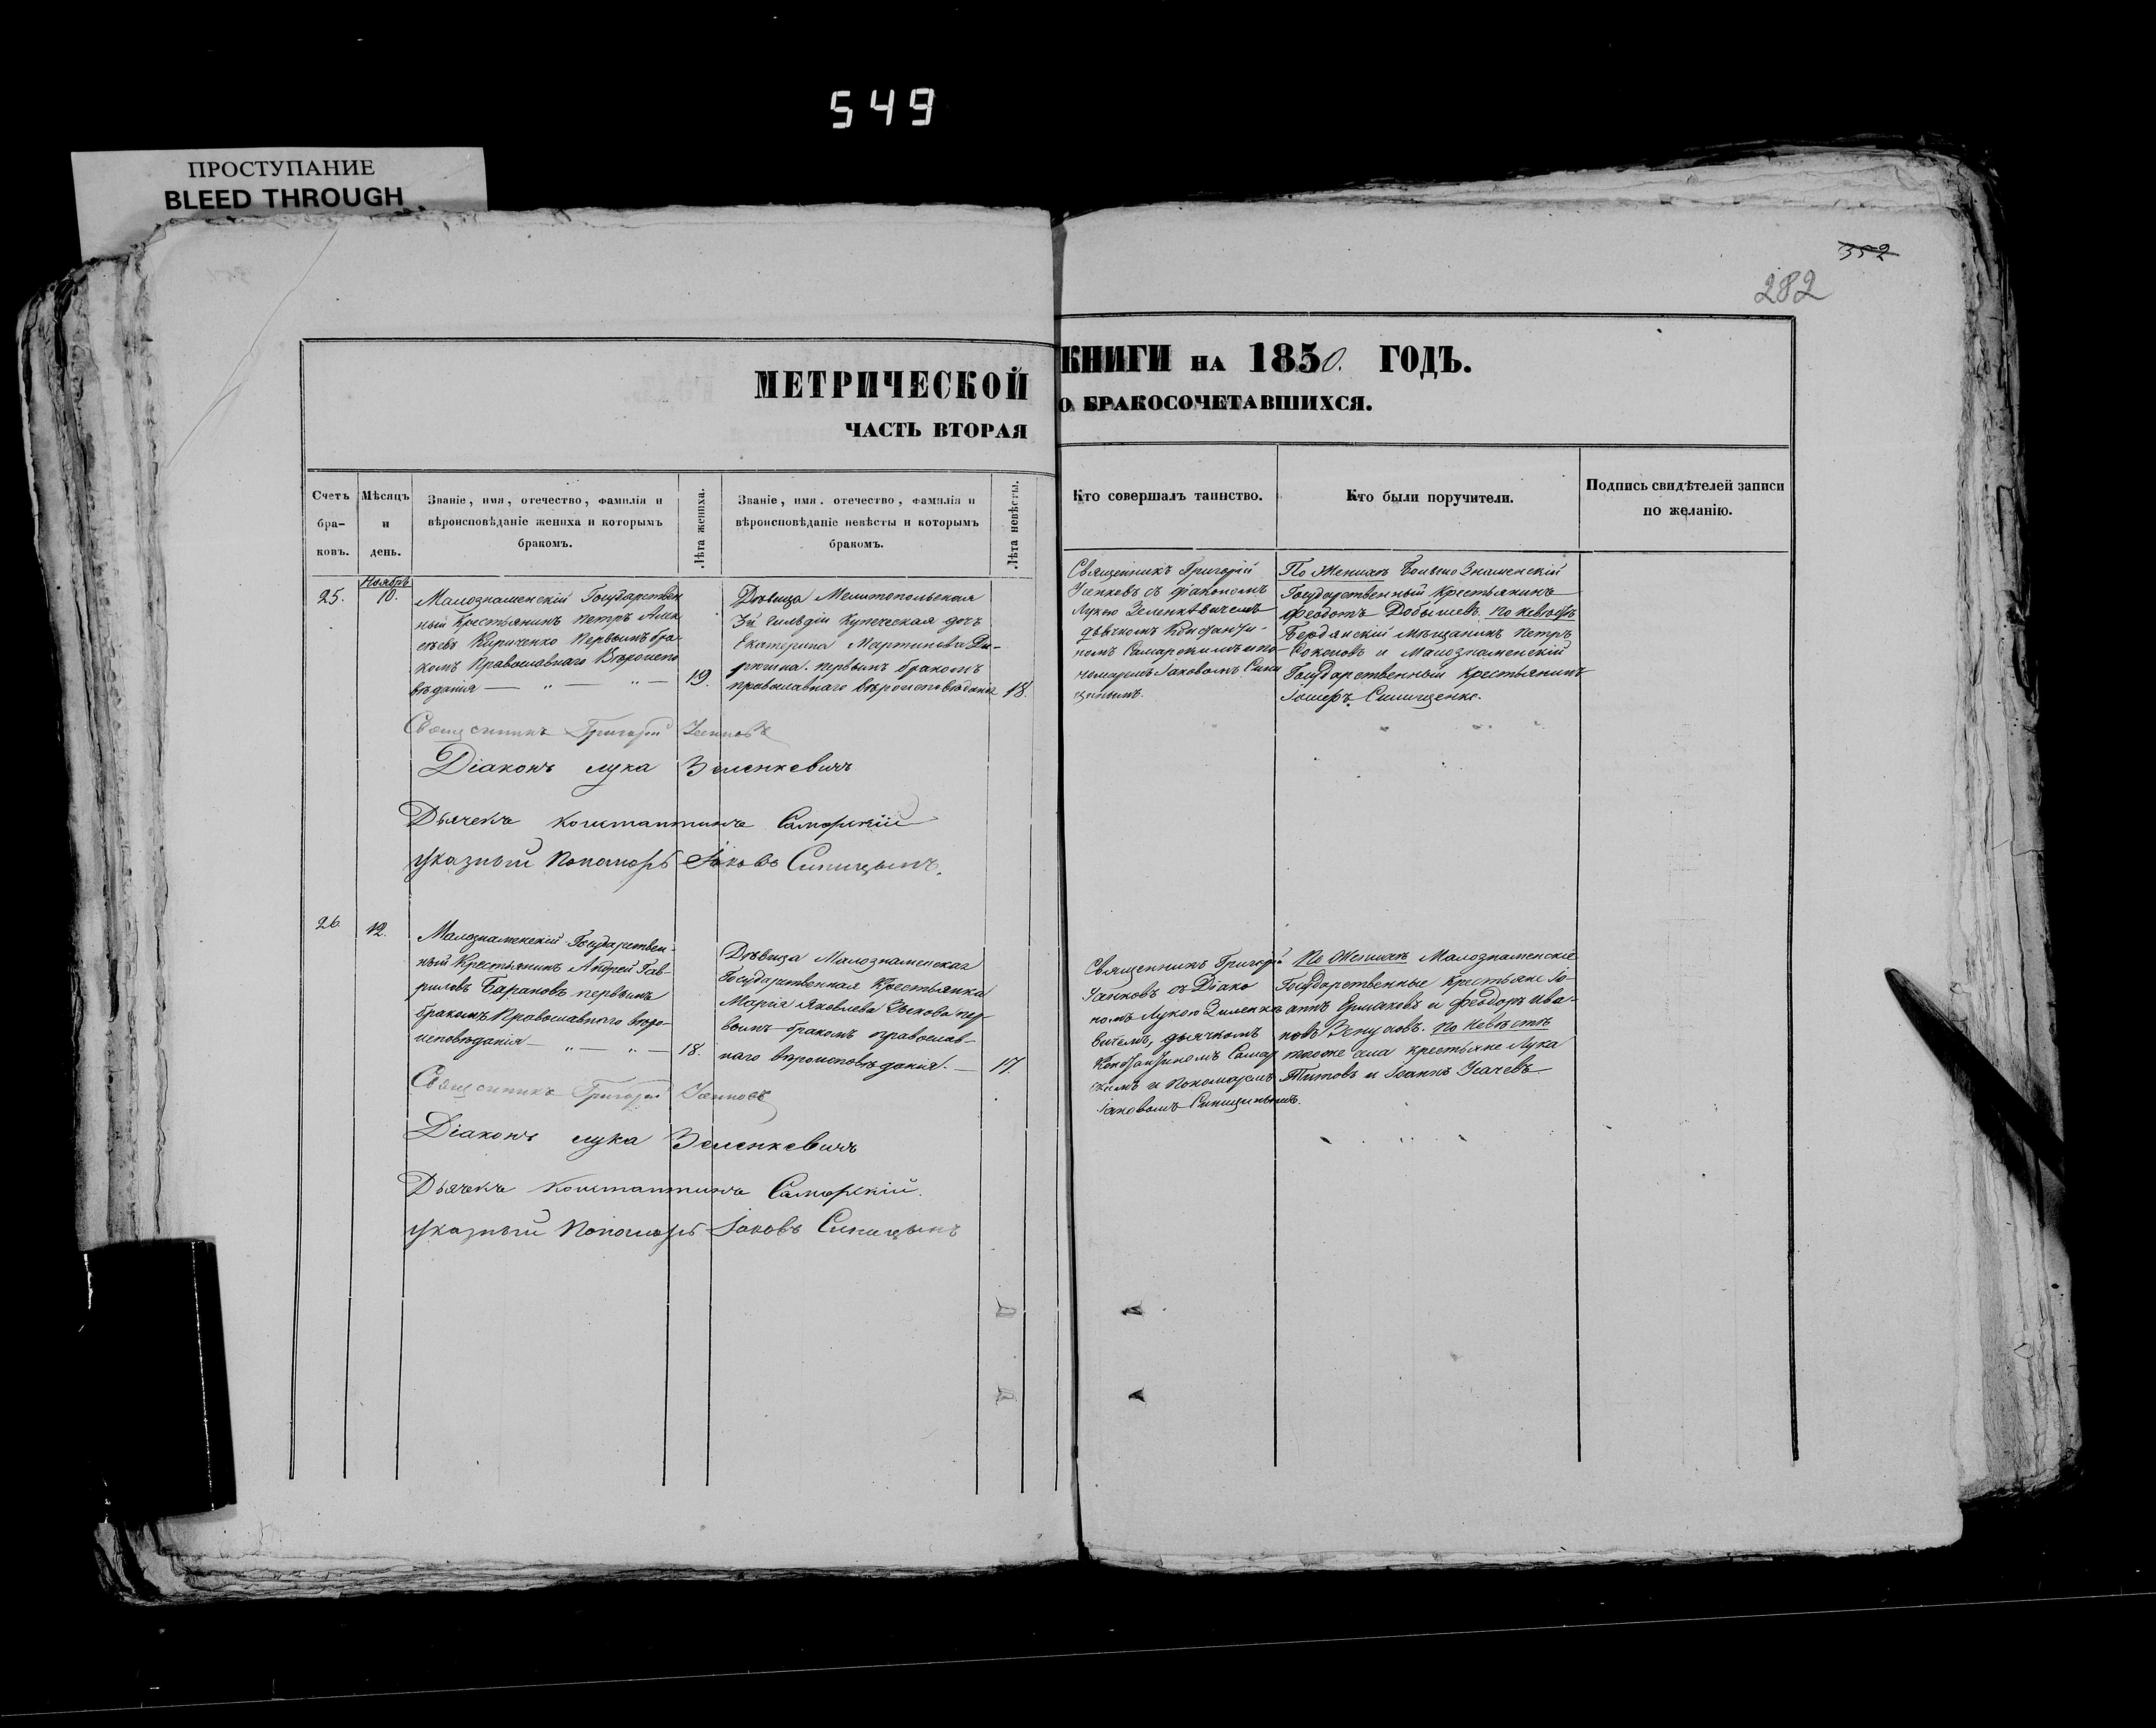 549
ПРОСТУПАНИЕ
BLEED THROUGH
352
282
МЕТРИЧЕСКОЙ
ЧАСТЬ ВТОРАЯ
КНИГИ НА 1850. ГОДЪ.
О БРАКОСОЧЕТАВШИХСЯ.
Счетъ бра-ковъ.
Мѣсяцъ и день.
Званіе, имя, отечество, фамилія и
вѣроисповѣданіе жениха и которымъ
бракомъ.
Лѣта жениха.
Званіе, имя, отечество, фамилія и
вѣроисповѣданіе невѣсты и которымъ
бракомъ.
Лѣта невѣсты.
Кто совершалъ таинство.
Кто были поручители.
Подпись свидѣтелей записи
по желанію.
25.
Ноябрь
10.
Малознаменскій Государствен
ный Крестьянинъ Петръ Алек
сѣевъ Кириченко Первымъ бра
комъ Православнаго Вѣроиспо
вѣданія — „ — „ —
19.
Дѣвица Мелитопольская
3й Гильдіи Купеческая дочь
Екатерина Мартинова
первымъ бракомъ
православнаго вѣроисповѣданія
18.
Священникъ Григорій
съ Діакономъ
Лукою Зеленкевичемъ
дьячкомъ Константи-
номъ Самарскимъ и по-
номаремъ Іаковомъ Сини
цынымъ.
По Женихѣ Больше Знаменскій
Государственный Крестьянинъ
Феодотъ Добышевъ. По невѣстѣ
Бердянскій Мѣщанинъ Петръ
Соколовъ и Малознаменскій
Государственный Крестьянинъ
Симищенко.
Священникъ Григорій
Діаконъ Лука Зеленкевичъ
Дьячекъ Константинъ Самарскій
Указный Пономарь Іаковъ Синицынъ.
26.
12.
Малознаменскій Государствен-
ный Крестьянинъ Андрей Гав-
риловъ Барановъ первымъ
бракомъ Православнаго вѣро-
исповѣданія — „ — „ —
18.
Дѣвица Малознаменская
Государственная Крестьянка
Марія Яковлева Зыкова пер-
вымъ бракомъ православ-
наго вѣроисповѣданія. —
17.
Священникъ Григорій
съ Діако
номъ Лукою Зеленке
вичемъ, дьячкомъ
Константиномъ Самар
скимъ и Пономаремъ
Іаковомъ Синицынымъ.
По Женихѣ Малознаменскіе
Государственные Крестьяне Іо-
аннъ Ермаковъ и Феодоръ Ива-
новъ По невѣстѣ
тогоже села крестьяне Лука
Титовъ и Іоаннъ Усачевъ
Священникъ Григорій
Діаконъ Лука Зеленкевичъ
Дьячекъ Константинъ Самарскій.
Указный Пономарь Іаковъ Синицынъ